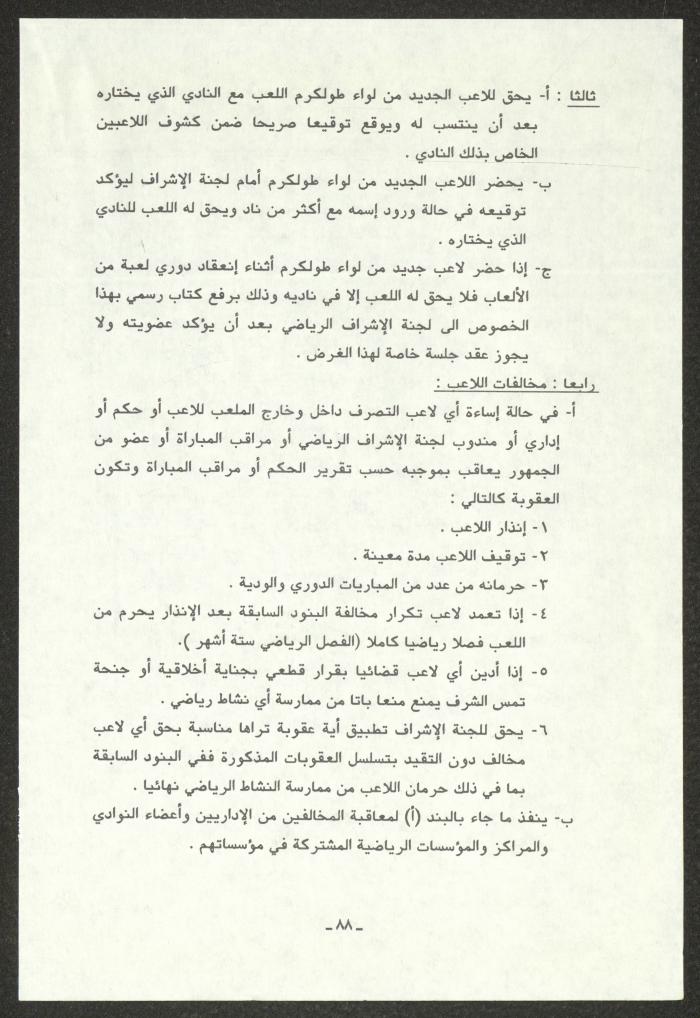 ثالثا : أ- يحق للاعب الجديد من لواء طولكرم اللعب مع النادي الذي يختاره
بعد أن ينتسب له ويوقع توقيعا صريحا ضمن كشوف اللاعبين
الخاص بذلك النادي .
ب- يحضر اللاعب الجديد من لواء طولكرم أمام لجنة الإشراف ليؤكد
توقيعه في حالة ورود إسمه مع أكثر من ناد ويحق له اللعب للنادي
الذي يختاره .
ج- إذا حضر لاعب جديد من لواء طولكرم أثناء إنعقاد دوري لعبة من
الألعاب فلا يحق له اللعب إلا في ناديه وذلك برفع كتاب رسمي بهذا
الخصوص الى لجنة الإشراف الرياضي بعد أن يؤكد عضويته ولا
يجوز عقد جلسة خاصة لهذا الغرض .
رابعا : مخالفات اللاعب :
أ- في حالة إساءة أي لاعب التصرف داخل وخارج الملعب للاعب أو حكم أو
إداري أو مندوب لجنة الإشراف الرياضي أو مراقب المباراة أو عضو من
الجمهور يعاقب بموجبه حسب تقرير الحكم أو مراقب المباراة وتكون
العقوبة كالتالي :
١- إنذار اللاعب .
٢- توقيف اللاعب مدة معينة .
٣- حرمانه من عدد من المباريات الدوري والودية .
٤- إذا تعمد لاعب تكرار مخالفة البنود السابقة بعد الإنذار يحرم من
اللعب فصلا رياضيا كاملا (الفصل الرياضي ستة أشهر ).
٥- إذا أدين أي لاعب قضائيا بقرار قطعي بجناية أخلاقية أو جنحة
تمس الشرف يمنع منعا باتا من ممارسة أي نشاط رياضي .
٦- يحق للجنة الإشراف تطبيق أية عقوبة تراها مناسبة بحق أي لاعب
مخالف دون التقيد بتسلسل العقوبات المذكورة ففي البنود السابقة
بما في ذلك حرمان اللاعب من ممارسة النشاط الرياضي نهائيا .
ب- ينفذ ما جاء بالبند (أ) لمعاقبة المخالفين من الإداريين وأعضاء النوادي
والمراكز والمؤسسات الرياضية المشتركة في مؤسساتهم .
ـ ٨٨ ـ